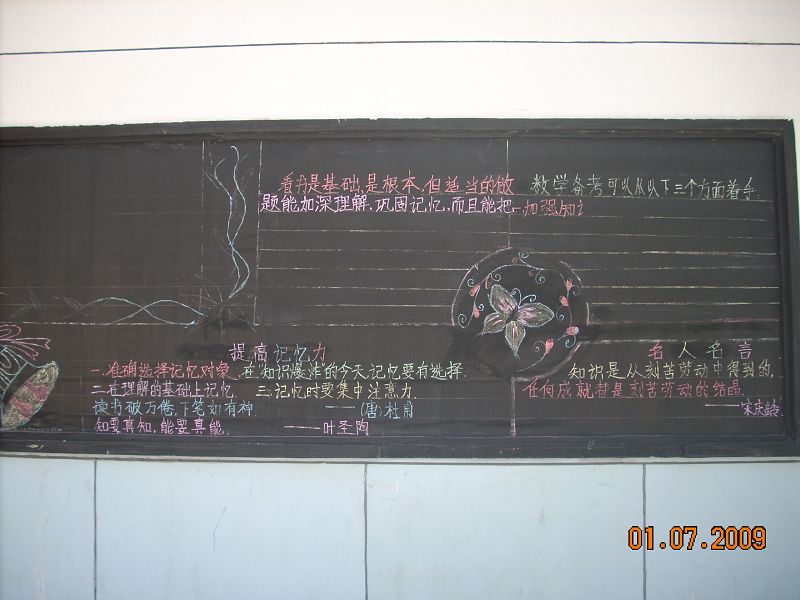 看书是基础,是根本,但适当的做
题能加深理解,巩固记忆,而且能把 加强知
数学备考可以从以下三个方面着手
提高记忆力
一.准确选择记忆对象,在知识爆炸的今天,记忆要有选择.
二.在理解的基础上记忆 三.记忆时要集中注意力.
读书破万卷,下笔如有神 ——(唐)杜甫
知要真知,能要真能. ——叶圣陶
名人名言
知识是从刻苦劳动中得到的,
任何成就都是刻苦劳动的结晶.
——宋庆龄
01.07.2009